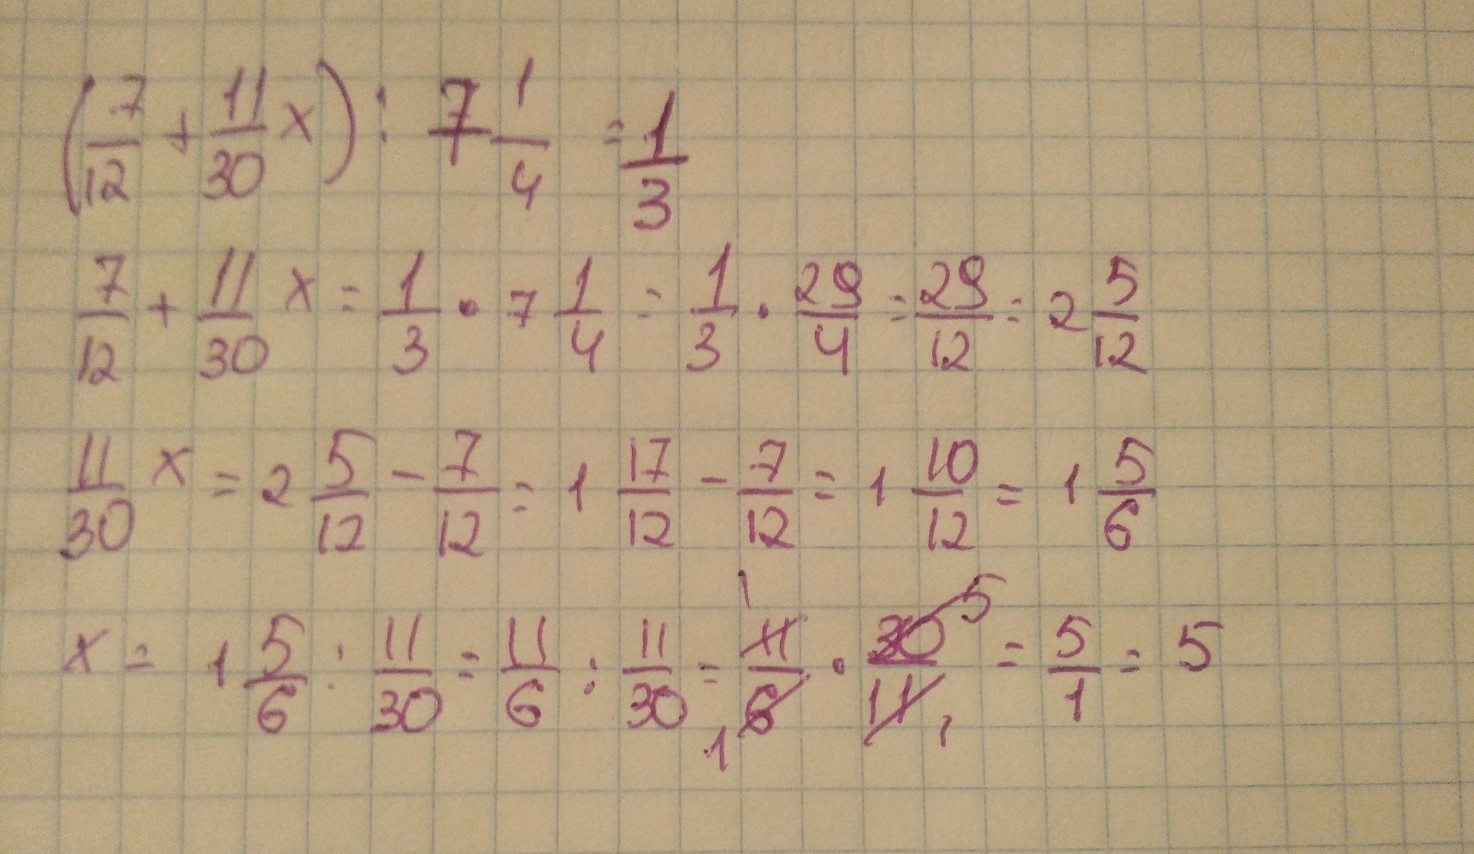 (7/12 + 11/30 x) : 7 1/4 = 1/3
7/12 + 11/30 x = 1/3 · 7 1/4 = 1/3 · 29/4 = 29/12 = 2 5/12
11/30 x = 2 5/12 - 7/12 = 1 17/12 - 7/12 = 1 10/12 = 1 5/6
x = 1 5/6 : 11/30 = 11/6 : 11/30 = 11 1/6 1 · 30 5/11 1 = 5/1 = 5